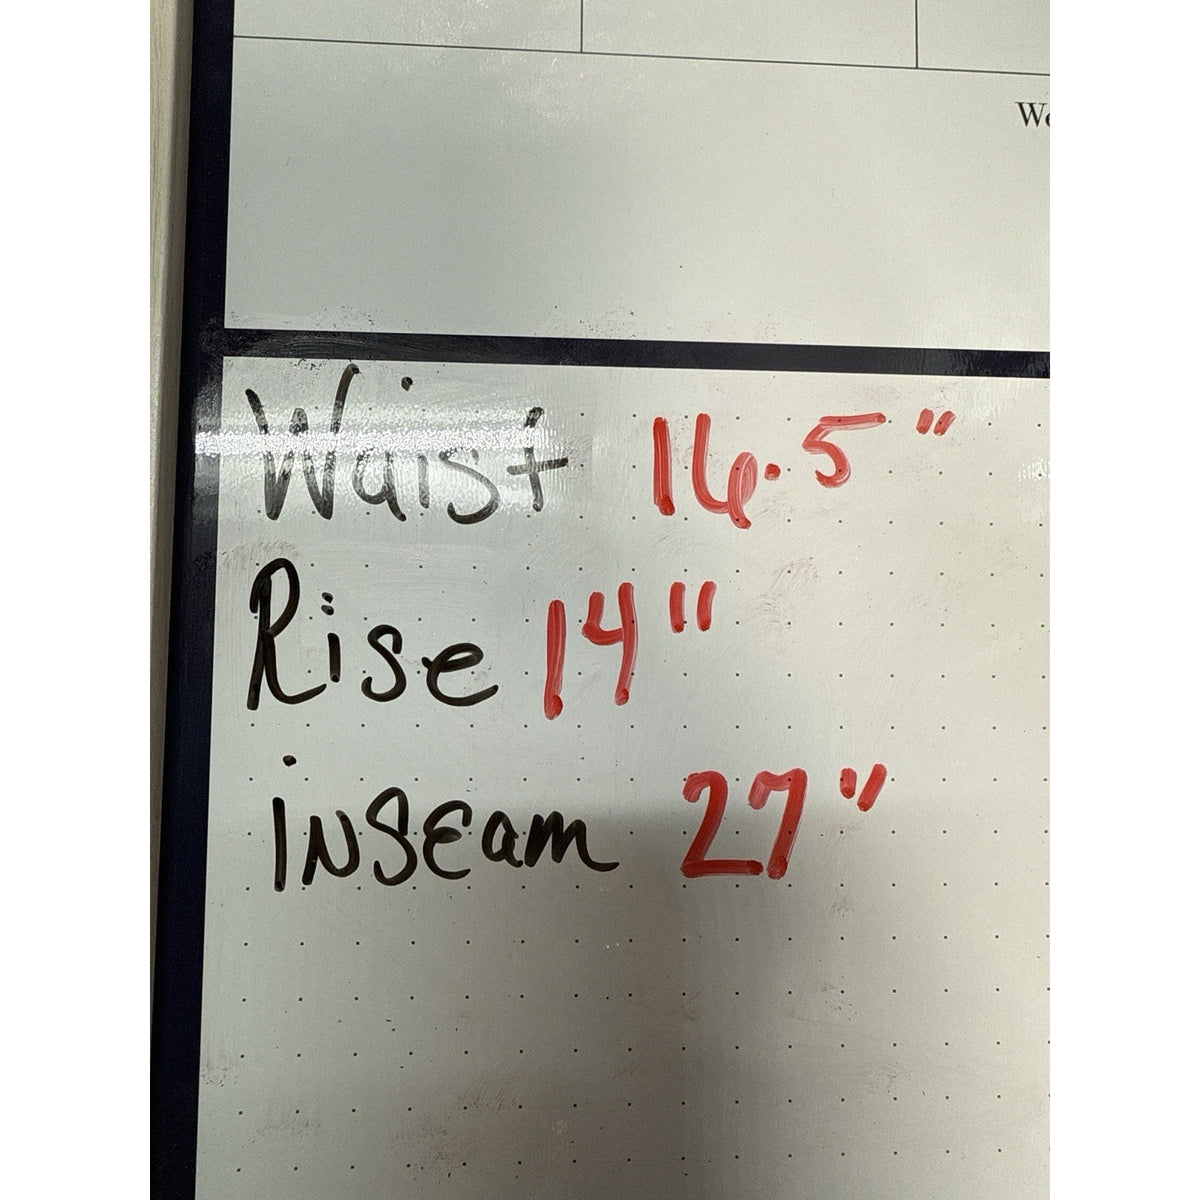 Waist 16.5"
Rise 14"
inseam 27"